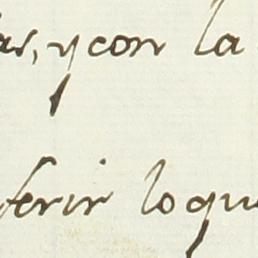 as, y con la
ferir lo que